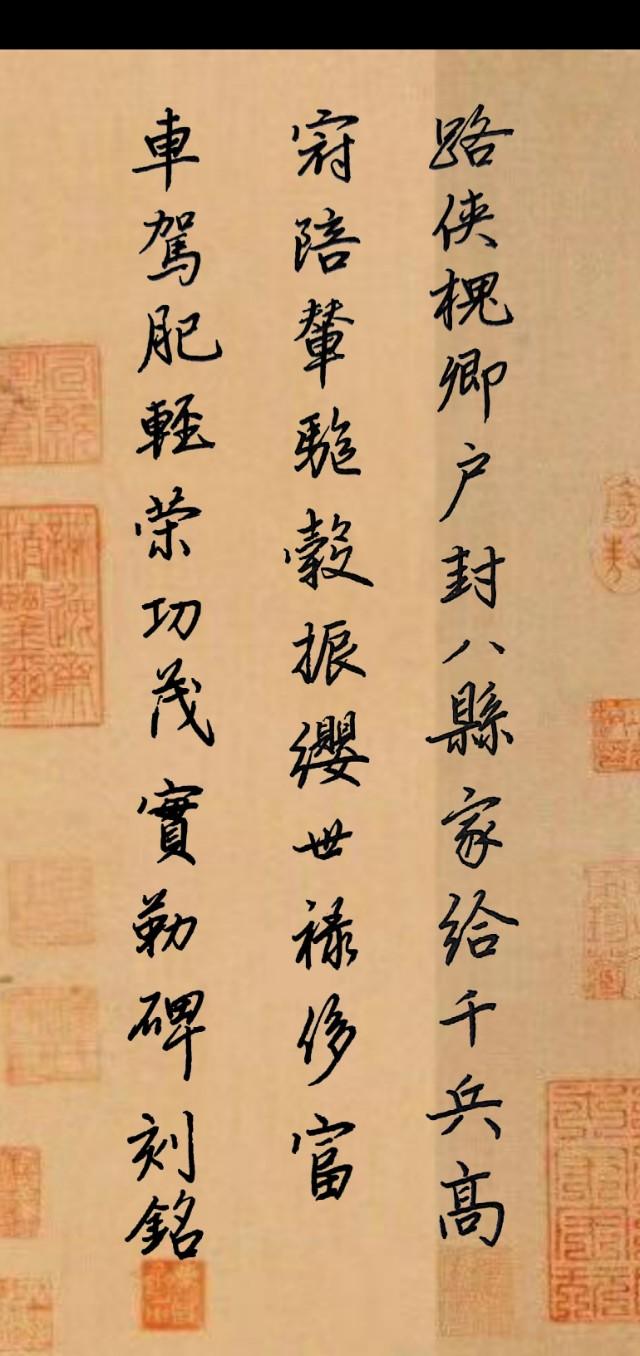 路侠槐卿户封八縣家给千兵髙
冠陪輦驅轂振纓世禄侈富
車駕肥輕荣功茂實勒碑刻銘